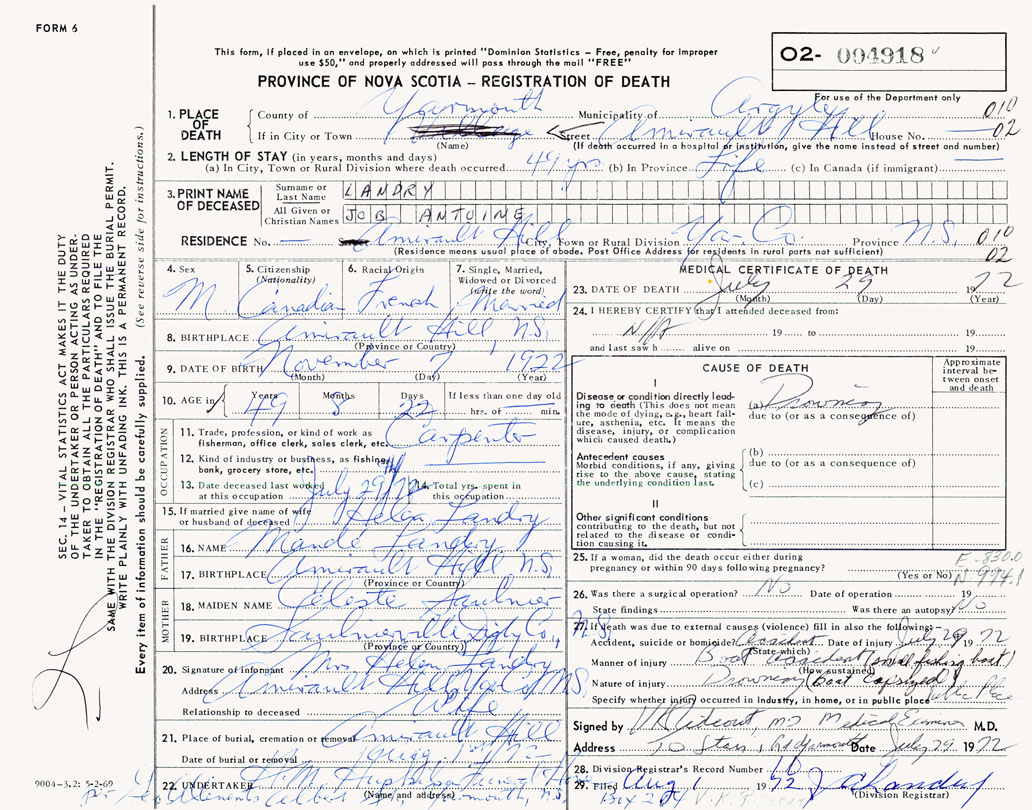 FORM 6
This form, if placed in an envelope, on which is printed "Dominion Statistics – Free, penalty for improper
use $50," and properly addressed will pass through the mail "FREE"
O2- 004918
PROVINCE OF NOVA SCOTIA – REGISTRATION OF DEATH
For use of the Department only
1. PLACE OF DEATH
County of Yarmouth Municipality of Argyle 010
If in City or Town Street Amirault Hill House No. — 02
(Name) (If death occurred in a hospital or institution, give the name instead of street and number)
2. LENGTH OF STAY (in years, months and days)
(a) In City, Town or Rural Division where death occurred 49 yrs. (b) In Province Life (c) In Canada (if immigrant) —
3. PRINT NAME OF DECEASED
Surname or Last Name LANDRY
All Given or Christian Names JOB ANTOINE
RESIDENCE No. — Amirault Hill City, Town or Rural Division Ya- Co. Province N.S. 010
(Residence means usual place of abode. Post Office Address for residents in rural parts not sufficient) 02
4. Sex
M.
5. Citizenship (Nationality)
Canadian
6. Racial Origin
French
7. Single, Married, Widowed or Divorced (write the word)
Married
8. BIRTHPLACE Amirault Hill N.S.
(Province or Country)
9. DATE OF BIRTH November 7, 1922
(Month) (Day) (Year)
10. AGE in Years 49 Months 8 Days 22 If less than one day old
hrs. or min.
OCCUPATION
11. Trade, profession, or kind of work as fisherman, office clerk, sales clerk, etc. Carpenter
12. Kind of industry or business, as fishing, bank, grocery store, etc.
13. Date deceased last worked at this occupation July 29/72
14. Total yrs. spent in this occupation
15. If married give name of wife or husband of deceased Helen Landry
FATHER
16. NAME Mande Landry
17. BIRTHPLACE Amirault Hill N.S.
(Province or Country)
MOTHER
18. MAIDEN NAME Celeste Saulnier
19. BIRTHPLACE Saulnierville Digby Co., N.S.
(Province or Country)
20. Signature of informant Mrs. Helen Landry
Address Amirault Hill N.S.
Relationship to deceased Wife
21. Place of burial, cremation or removal Amirault Hill
Date of burial or removal
22. UNDERTAKER H.M.
(Name and address)
MEDICAL CERTIFICATE OF DEATH
23. DATE OF DEATH July 29 1972
(Month) (Day) (Year)
24. I HEREBY CERTIFY that I attended deceased from:
N/A 19 to 19
and last saw h alive on 19
CAUSE OF DEATH
Approximate interval between onset and death
I
Disease or condition directly leading to death (This does not mean the mode of dying, e.g., heart failure, asthenia, etc. It means the disease, injury, or complication which caused death.)
(a) Drowning
due to (or as a consequence of)
Antecedent causes
Morbid conditions, if any, giving rise to the above cause, stating the underlying condition last.
(b)
due to (or as a consequence of)
(c)
II
Other significant conditions contributing to the death, but not related to the disease or condition causing it.
25. If a woman, did the death occur either during pregnancy or within 90 days following pregnancy?
(Yes or No)
E-830.0
N 994.1
26. Was there a surgical operation? No Date of operation 19
State findings Was there an autopsy? No
27. If death was due to external causes (violence) fill in also the following:–
Accident, suicide or homicide? Accident Date of injury July 29 1972
(State which)
Manner of injury Boat accident (small fishing boat)
(How sustained)
Nature of injury Drowning (boat capsized)
Specify whether injury occurred in industry, in home, or in public place Public Place
Signed by Rideout, MD Medical Examiner M.D.
Address Yarmouth Date July 29. 1972
28. Division Registrar's Record Number 10
29. Filed Aug 1 1972
(Division Registrar)
SEC. 14 – VITAL STATISTICS ACT MAKES IT THE DUTY
OF THE UNDERTAKER OR PERSON ACTING AS UNDERTAKER TO OBTAIN ALL THE PARTICULARS REQUIRED
IN THE "REGISTRATION OF DEATH" AND TO FILE THE
SAME WITH THE DIVISION REGISTRAR WHO SHALL ISSUE THE BURIAL PERMIT.
WRITE PLAINLY WITH UNFADING INK. THIS IS A PERMANENT RECORD.
Every item of information should be carefully supplied. (See reverse side for instructions.)
9004–3.2: 5-2-69